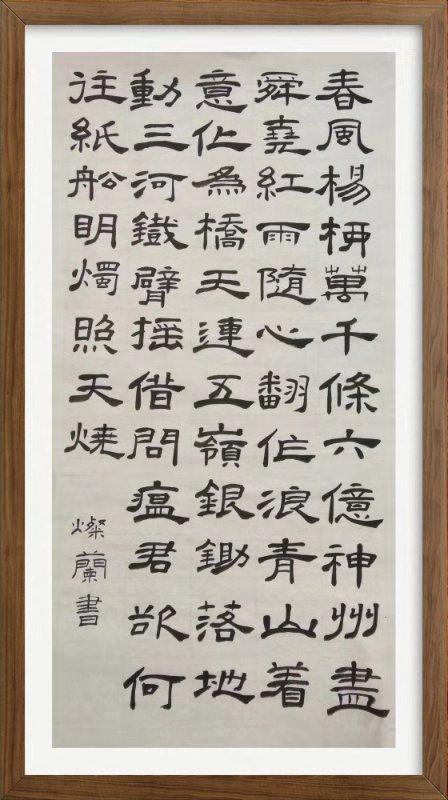 春風楊柳萬千條六億神州盡
舜堯紅雨隨心翻作浪青山着
意化為橋天連五嶺銀鋤落地
動三河鐵臂摇借問瘟君欲何
往紙船明燭照天燒
燦蘭書